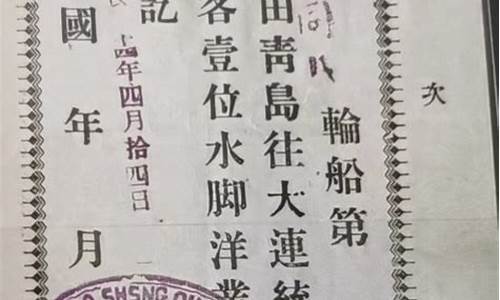 次
輪船第
由青島往大連統
客壹位水脚洋
訖
四年四月拾四日
國年月
SHSNG